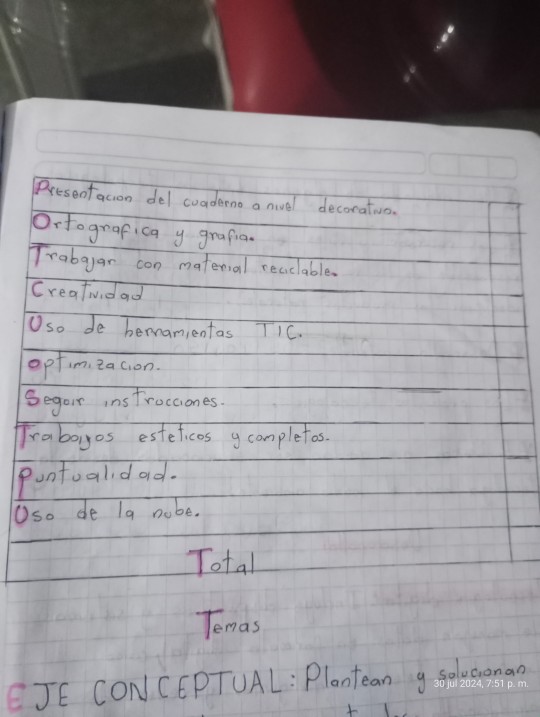 Presentacion del cuaderno a nivel decorativo.
Ortografica y grafia.
Trabajar con material reciclable.
Creatividad
Uso de herramientas TIC.
optimizacion.
Seguir instrucciones.
Trabajos esteticos y completos.
Puntualidad.
Uso de la nube.
Total
Temas
EJE CONCEPTUAL: Plantean y solucionan
30 jul 2024, 7:51 p. m.